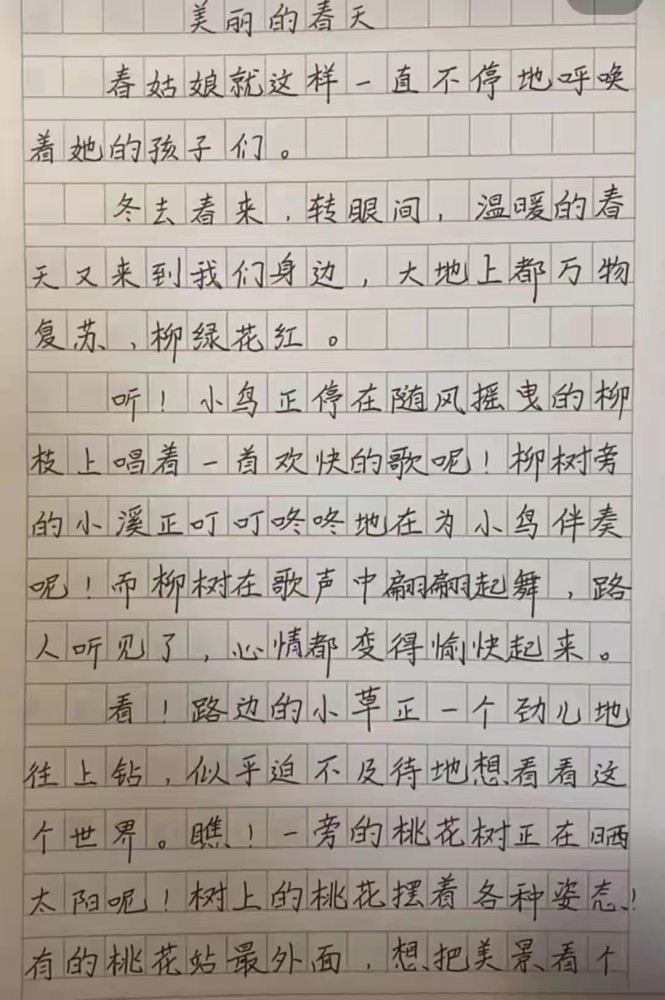 美丽的春天
春姑娘就这样一直不停地呼唤
着她的孩子们。
冬去春来，转眼间，温暖的春
天又来到我们身边，大地上都万物
复苏，柳绿花红。
听！小鸟正停在随风摇曳的柳
枝上唱着一首欢快的歌呢！柳树旁
的小溪正叮叮咚咚地在为小鸟伴奏
呢！而柳树在歌声中翩翩起舞，路
人听见了，心情都变得愉快起来。
看！路边的小草正一个劲儿地
往上钻，似乎迫不及待地想看看这
个世界。瞧！一旁的桃花树正在晒
太阳呢！树上的桃花摆着各种姿态！
有的桃花站最外面，想把美景看个